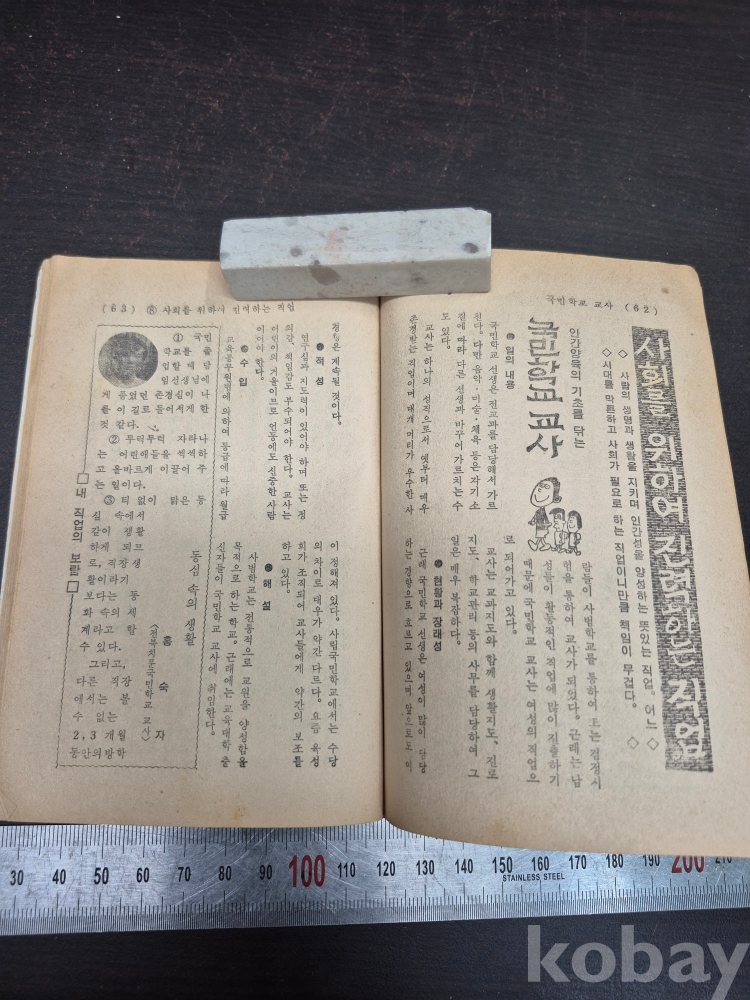 국민학교 교사 (62)
사회를 위하여 진력하는 직업
◇ 사람의 생명과 생활을 지키며 인간성을 양성하는 뜻있는 직업. 어느 ◇
◇ 시대를 막론하고 사회가 필요로 하는 직업이니만큼 책임이 무겁다. ◇
인간양육의 기초를 닦는
국민학교 교사
● 일의 내용
국민학교 선생은 전교과를 담당해서 가르
친다. 다만 음악·미술·체육 등은 자기 소
질에 따라 다른 선생과 바꾸어 가르치는 수
도 있다.
교사는 하나의 성직으로서 옛부터 매우
존경받는 직업이며 대개 머리가 우수한 사
람들이 사범학교를 통하여 또는 검정시
험을 통하여 교사가 되었다. 근래는 남
성들이 활동적인 직업에 많이 진출하기
때문에 국민학교 교사는 여성의 직업으
로 되어가고 있다.
교사는 교과지도와 함께 생활지도, 진로
지도, 학교관리 등의 사무를 담당하여 그
일은 매우 복잡하다.
● 현황과 장래성
근래 국민학교 선생은 여성이 많이 담당
하는 경향으로 흐르고 있으며 앞으로도 이
(63) ⑧ 사회를 위하여 진력하는 직업
경향은 계속될 것이다.
● 적성
연구심과 지도력이 있어야 하며 또는 정
의감, 책임감도 부수되어야 한다. 교사는
어린이의 거울이므로 언동에도 신중한 사람
이어야 한다.
● 수입
교육공무원법에 의하여 등급에 따라 월급
이 정해져 있다. 사립국민학교에서는 수당
의 차이로 대우가 약간 다르다. 요즘 육성
회가 조직되어 교사들에게 약간의 보조를
하고 있다.
● 해설
사범학교는 전통적으로 교원을 양성함을
목적으로 하는 학교. 근래에는 교육대학 출
신자들이 국민학교 교사에 취임한다.
동심 속의 생활
홍숙자
<전국치문국민학교 교사>
□내 직업의 보람□
① 국민
학교를 졸
업할때 담
임선생님에
게 품었던 존경심이 나
를 이 길로 들어서게 한
것 같다.
② 무럭무럭 자라나
는 어린애들을 씩씩하
고 올바르게 이끌어 주
는 일이다.
③ 티없이 맑은 동
심 속에서
같이 생활
하게 되므
로, 직장생
활이라기
보다는 동
화 속의 세
계라고 할
수 있다.
그리고,
다른 직장
에서는 볼
수 없는
2, 3 개월
동안의방학
30 40 50 60 70 80 90 100 110 120 130 140 150 160 170 180 190 200 210
STAINLESS STEEL
kobay